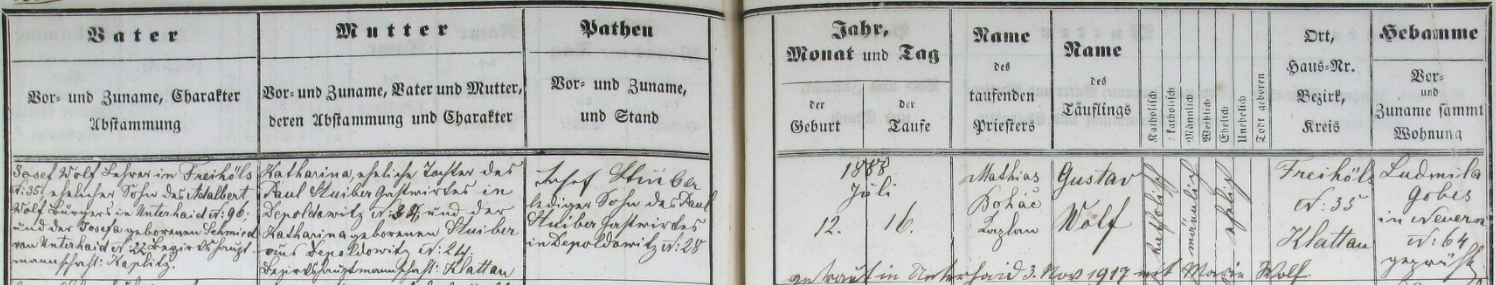 Vater
Vor- und Zuname, Charakter
Abstammung
Mutter
Vor- und Zuname, Vater und Mutter,
deren Abstammung und Charakter
Pathen
Vor- und Zuname,
und Stand
Jahr,
Monat und Tag
der
Geburt
der
Taufe
Name
des
taufenden
Priesters
Name
des
Täuflings
Katholisch
katholisch
Männlich
Weiblich
Ehelich
Unehelich
Todt geboren
Ort,
Haus-Nr.
Bezirk,
Kreis
Hebamme
Vor-
und
Zuname sammt
Wohnung
Josef Wolf Lehrer in Freihöls
N: 35, ehelicher Sohn des Adalbert
Wolf Bürgers in Unterhaid N: 96;
und der Josefa geborenen Schmied
von Unterhaid N: 22 Bezirkshaupt-
mannschaft: Kaplitz.
Katharina, eheliche Tochter des
Paul Stuiber Gastwirtes in
Depoldowitz N: und der
Katharina geborenen Stuiber
aus Depoldowitz N: 24.
Bezirkshauptmannschaft: Klattau
Josef Stuiber
lediger Sohn des Paul
Stuiber Gastwirtes
in Depoldowitz N: 28
1888
Juli
12. 16.
Mathias
Boháč
Kaplan
Gustav
Wolf
katholisch
männlich
ehlich
Freihöls
N: 35
Klattau
Ludmila
Gobes
in Neuern
N: 64
geprüft
getraut in Unterhaid 3. Nov 1917 mit Marie Wolf